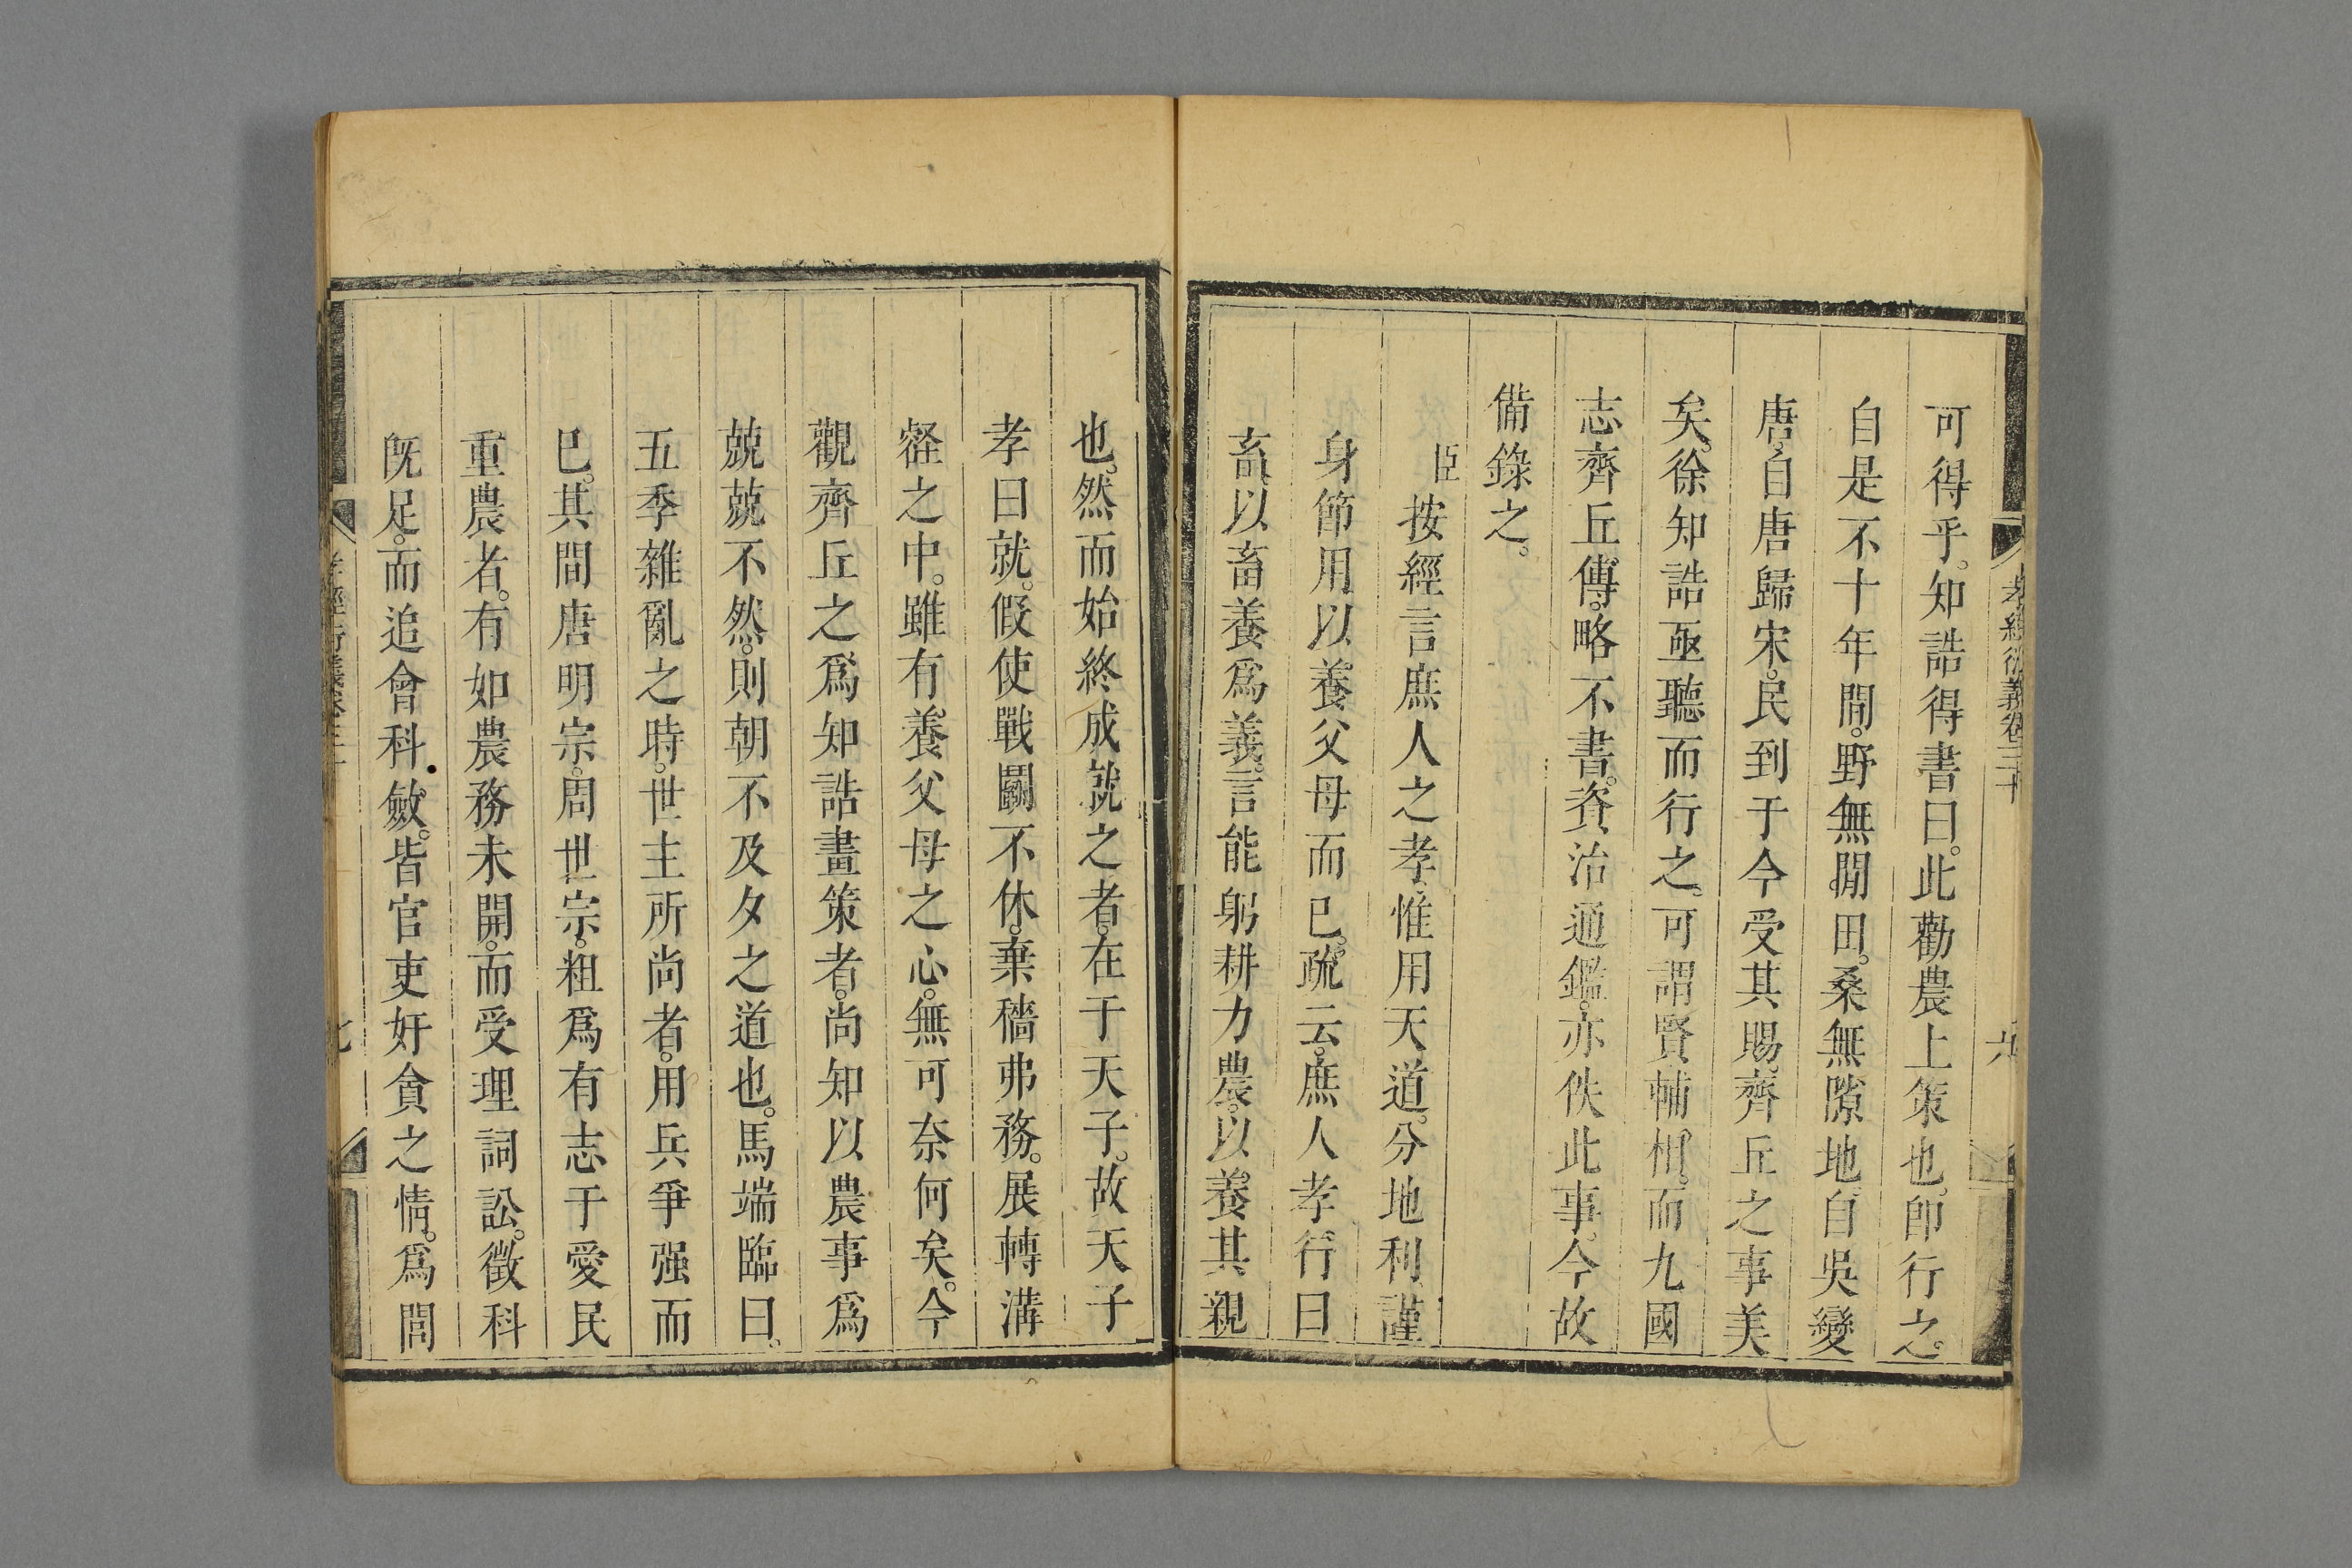 孝經衍義卷三十
六
可得乎。知誥得書曰。此勸農上策也。卽行之。
自是不十年間。野無閒田。桑無隙地。自吳變
唐。自唐歸宋。民到于今受其賜。齊丘之事美
矣。徐知誥亟聽而行之。可謂賢輔相。而九國
志齊丘傳。略不書。資治通鑑。亦佚此事。今故
備錄之。
臣按經言庶人之孝。惟用天道。分地利。謹
身節用。以養父母而已。疏云。庶人孝行曰
畜。以畜養爲義。言能躬耕力農。以養其親
也。然而始終成就之者。在于天子。故天子
孝曰就。假使戰鬭不休。棄穡弗務。展轉溝
壑之中。雖有養父母之心。無可奈何矣。今
觀齊丘之爲知誥畫策者。尚知以農事爲
兢兢。不然。則朝不及夕之道也。馬端臨曰。
五季雜亂之時。世主所尚者。用兵爭强而
已。其間唐明宗。周世宗。粗爲有志于愛民
重農者。有如農務未開。而受理詞訟。徵科
旣足。而追會科斂。皆官吏奸貪之情。爲閭
孝經衍義卷三十
七